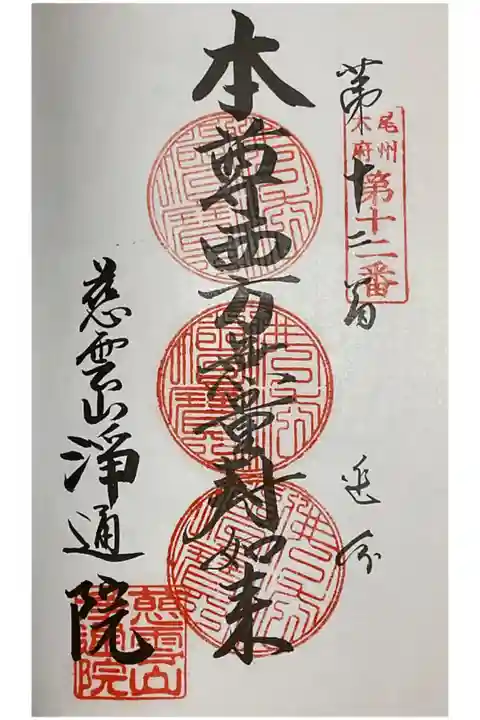 第十二番
尾州
第十二番
本尊西方無量壽如来
慈雲山淨通院
慈雲山
淨通院